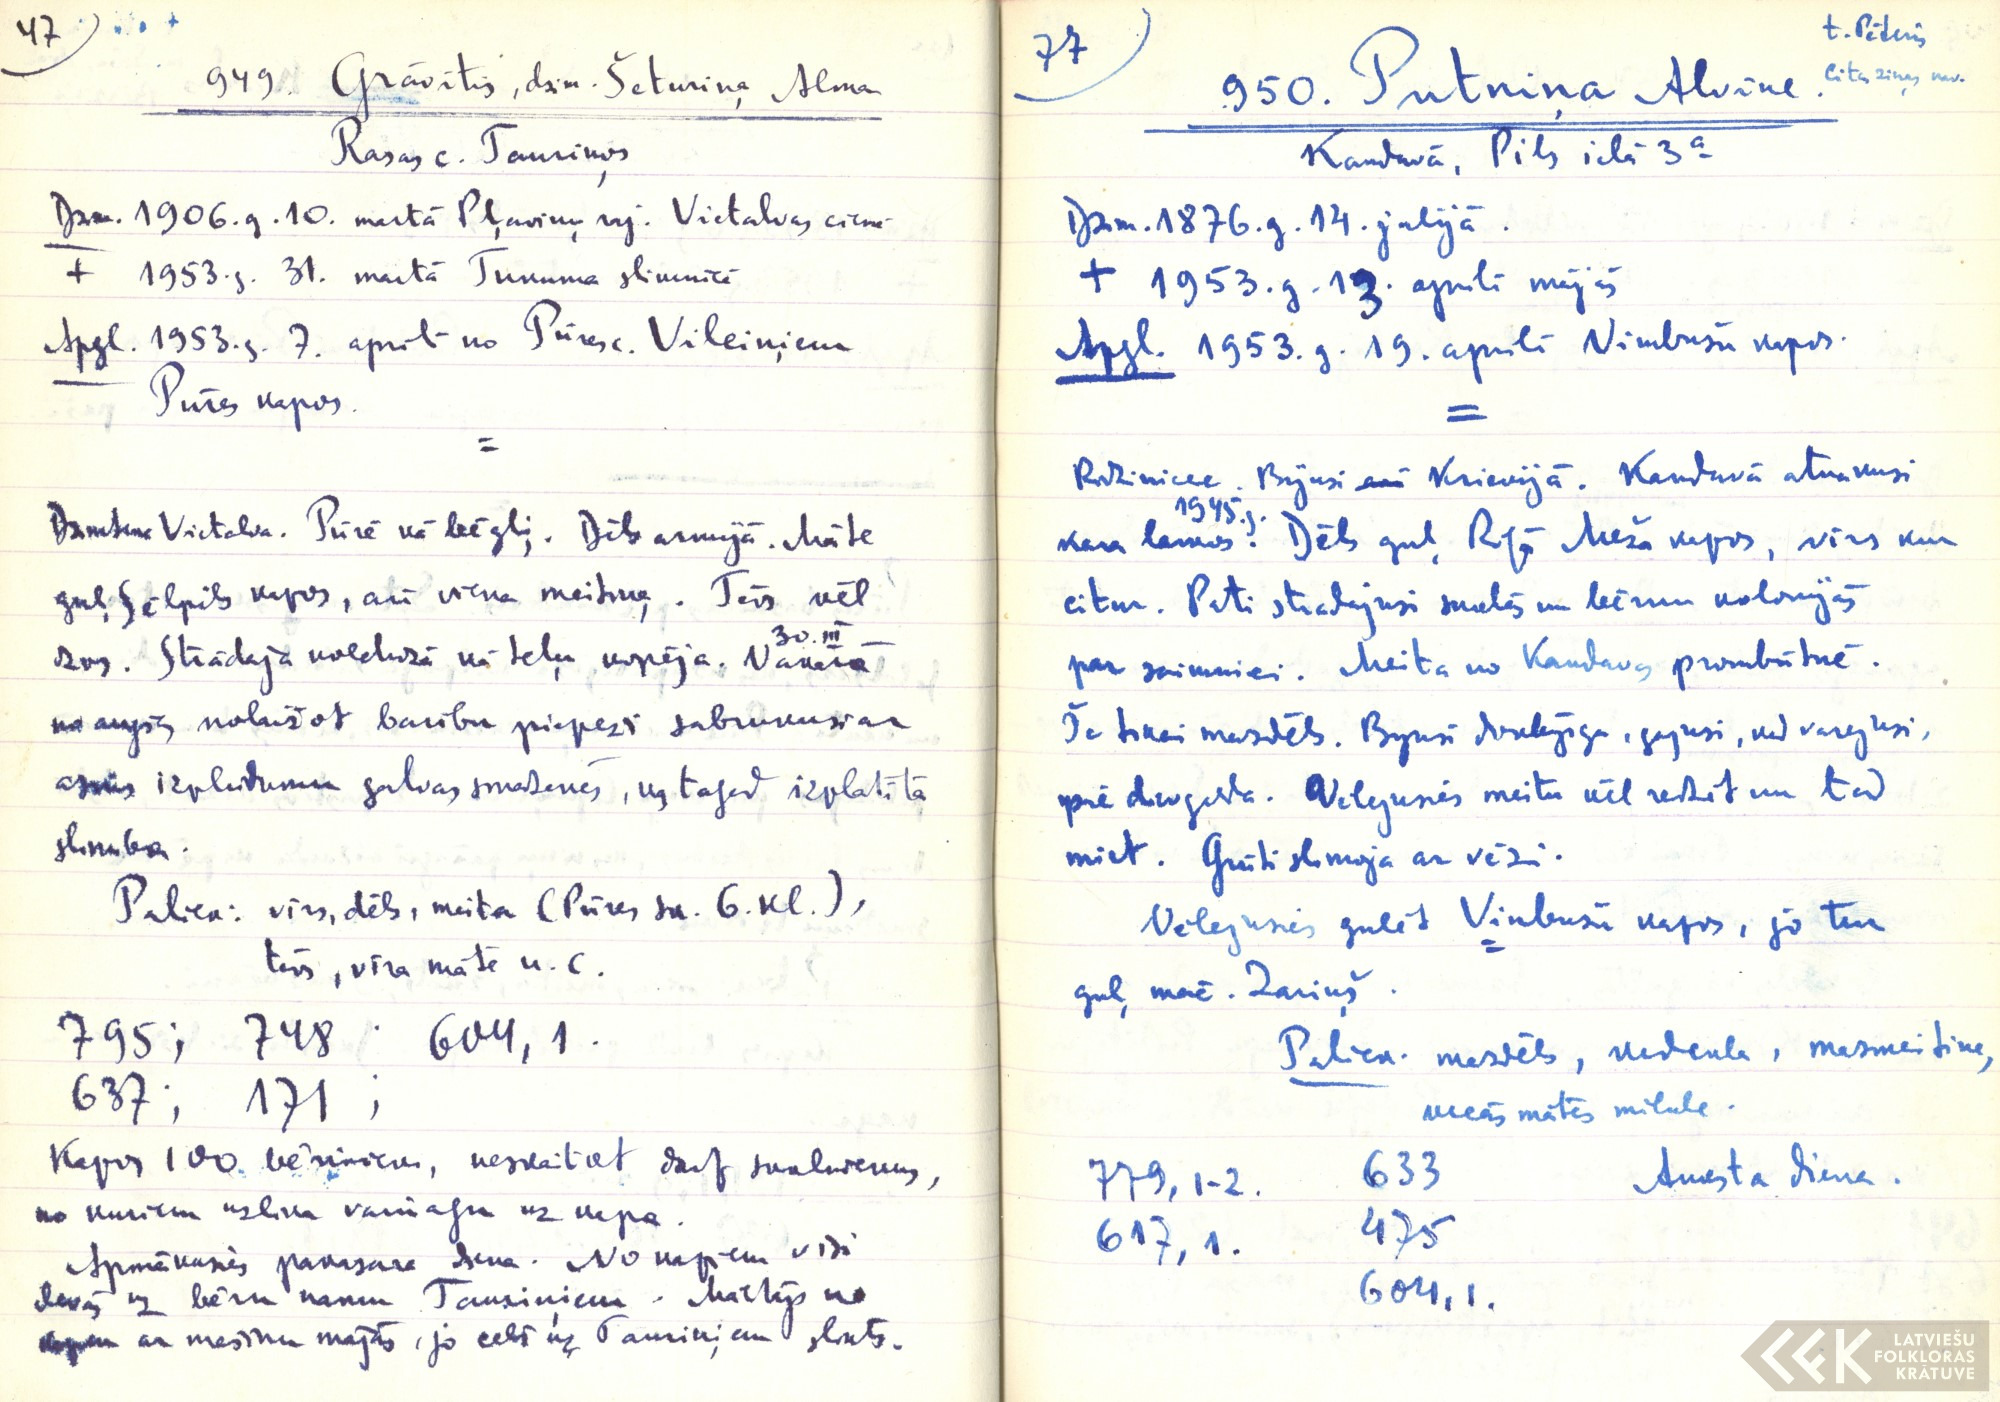 47
949. Grāvītis, dzim. Šeturiņa Alma
Rasas c. Tauriņos
Dzm. 1906.g. 10. martā Pļaviņu raj. Vietalvas ciemā
+ 1953.g. 31. martā Tukuma slimnīcā
Apgl. 1953.g. 7. aprīlī no Pūres c. Vilciņiem
Pūres kapos.
=
Dzimtene Vietalva. Pūrē kā bēgļi. Dēls armijā. Māte
guļ Sēlpils kapos, arī viena meitiņa. Tēvs vēl
dzīvs. Strādāja kolchozā kā teļu kopēja. Vakarā
30.III
no augšas nolaižot barību piepeši sabrukusi ar
asins izplūdumu galvas smadzenēs, kas tagad izplatīta
slimība.
Paliek: vīrs, dēls, meita (Pūres sk. 6. kl.),
tēvs, vīra māte u.c.
795; 748 604,1.
637; 171;
Kapos 100 bērinieku, neskaitot daž skolniekus,
no kuriem uzlika vaiņagu uz kapa.
Apmākusies pavasara diena. No kapiem visi
devās uz bēru namu Tauriņiem. Mācītājs no
kapiem ar mašīnu mājās, jo ceļš uz Tauriņiem slikts.
77
t. Pēteris
Citas ziņas nav.
950. Putniņa Alvīne.
Kandavā, Pils ielā 3a
Dzim. 1876.g. 14. jūlijā.
+ 1953.g. 13. aprīlī mājās
Apgl. 1953.g. 19. aprīlī Vimbušu kapos.
=
Rīdziniece. Bijusi Krievijā. Kandavā atnākusi
1945.g.
kara laikos. Dēls guļ Rīgā Meža kapos, vīrs kur
citur. Pati strādājusi skolās un bērnu kolonijās
par saimnieci. Meita no Kandavas prombūtnē.
Te tikai mazdēls. Bijusi dievbijīga, gājusi, kad varējusi,
pie dievgalda. Vēlējusies meitu vēl redzēt un tad
mirt. Grūti slimoja ar vēzi.
Vēlējusies gulēt Vimbušu kapos, jo tur
guļ māc. Zariņš.
Paliek: mazdēls, vedekla, mazmeitiņa,
vecās mātes mīlule.
779,1-2. 633 Auksta diena.
617,1. 475
604,1.
LATVIEŠU
FOLKLORAS
KRĀTUVE